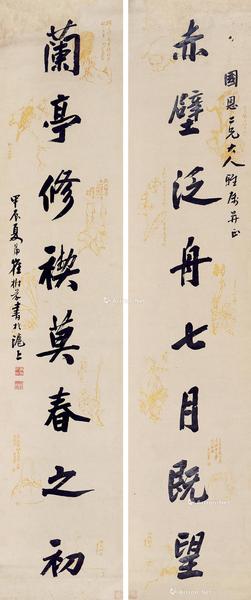 赤壁泛舟七月既望
國恩二兄大人雅屬並正
蘭亭修禊莫春之初
甲辰夏 崔樹 書於滬上